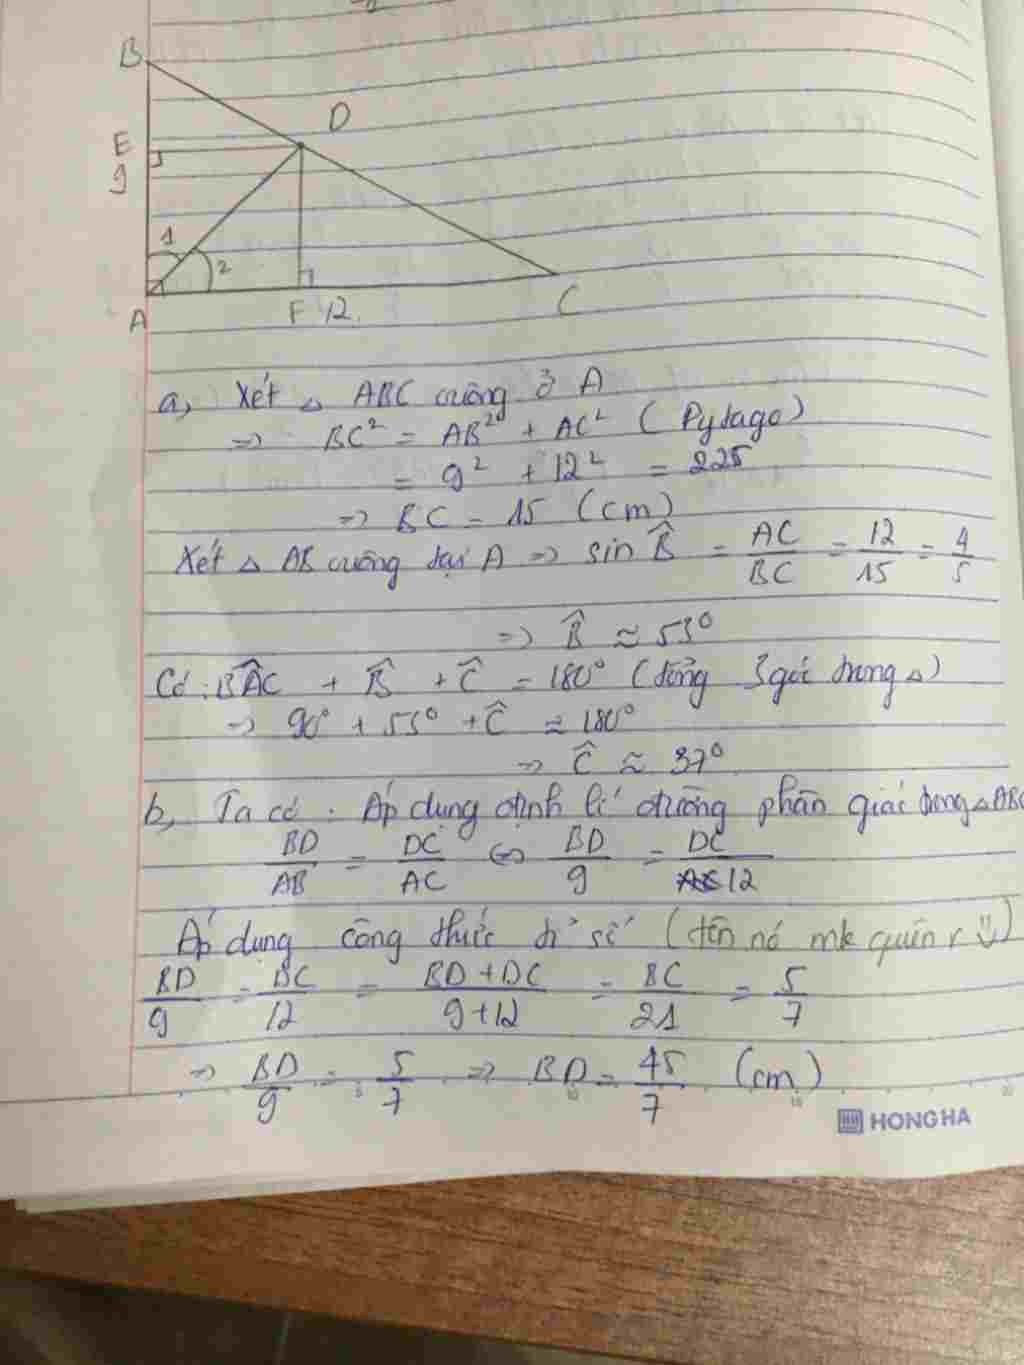 B
D
E
9
1
2
A
F 12
C
a, Xét △ ABC vuông ở A
=> BC² = AB² + AC² ( Pytago )
= 9² + 12² = 225
=> BC = 15 (cm)
Xét △ AB vuông tại A => sin B̂ = AC/BC = 12/15 = 4/5
=> B̂ ≈ 53°
Có : BÂC + B̂ + Ĉ = 180° (tổng 3 góc trong △)
=> 90° + 53° + Ĉ ≈ 180°
=> Ĉ ≈ 37°
b, Ta có : Áp dụng định lí đường phân giác trong △ABC
BD/AB = DC/AC <=> BD/9 = DC/12
Áp dụng công thức tỉ số (tên nó mk quên r)
BD/9 = BC/12 = BD + DC/9+12 = BC/21 = 5/7
=> BD/9 = 5/7 => BD = 45/7 (cm)
HONG HA